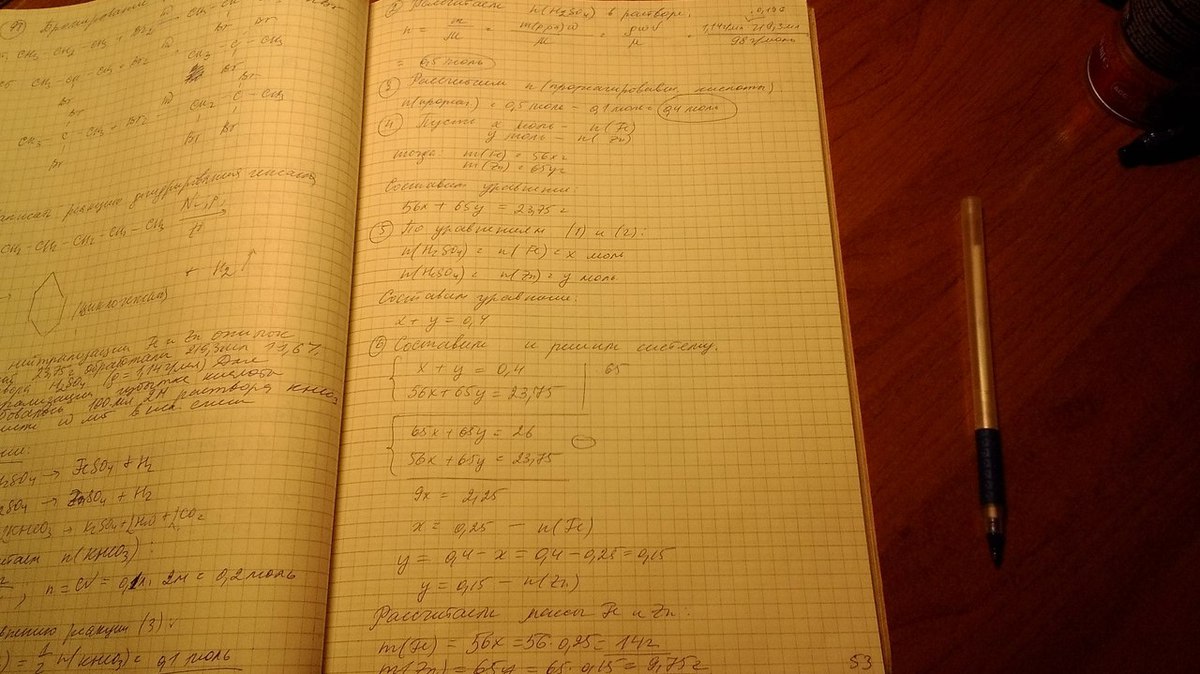 CH3 - CH2 - CH3 + Br2
Br
CH3 - C - CH3
Br
Br
CH3 - C - CH3 + Br2
C - CH3
Br
Br Br
реакцию дегидрирования гексана
CH3 - CH2 - CH2 - CH2 - CH3
+ H2↑
(циклогексан)
нейтрализации Fe и Zn
23,75г обработали 219,3мл 19,6%
H2SO4 (ρ = 1,14г/мл) Для
избытка кислоты
100мл 2М раствора KHCO3
H2SO4 → FeSO4 + H2
H2SO4 → ZnSO4 + H2
KHCO3 → K2SO4 + H2O + CO2
n(KHCO3):
n = CV = 0,1л · 2М = 0,2 моль
реакции (3)
= 1/2 n(KHCO3) = 0,1 моль
② Рассчитаем n(H2SO4) в растворе.
0,196
n = m/M = m(р-ра)ω/M = ρωV/M = 1,14г/мл 219,3мл/98г/моль
= 0,5 моль
③ Рассчитаем n(прореагировавш. кислоты)
n(прореаг) = 0,5 моль - 0,1 моль = 0,4 моль
④ Пусть x моль - n(Fe)
y моль - n(Zn)
тогда: m(Fe) = 56xг
m(Zn) = 65yг
Составим уравнение:
56x + 65y = 23,75г
⑤ По уравнениям (1) и (2):
n(H2SO4) = n(Fe) = x моль
n(H2SO4) = n(Zn) = y моль
Составим уравнение:
x + y = 0,4
⑥ Составим и решим систему.
x + y = 0,4 | 65
56x + 65y = 23,75
65x + 65y = 26
56x + 65y = 23,75
9x = 2,25
x = 0,25 - n(Fe)
y = 0,4 - x = 0,4 - 0,25 = 0,15
y = 0,15 - n(Zn)
Рассчитаем массы Fe и Zn:
m(Fe) = 56x = 56·0,25 = 14г
m(Zn) = 65y = 65·0,15 = 9,75г
53